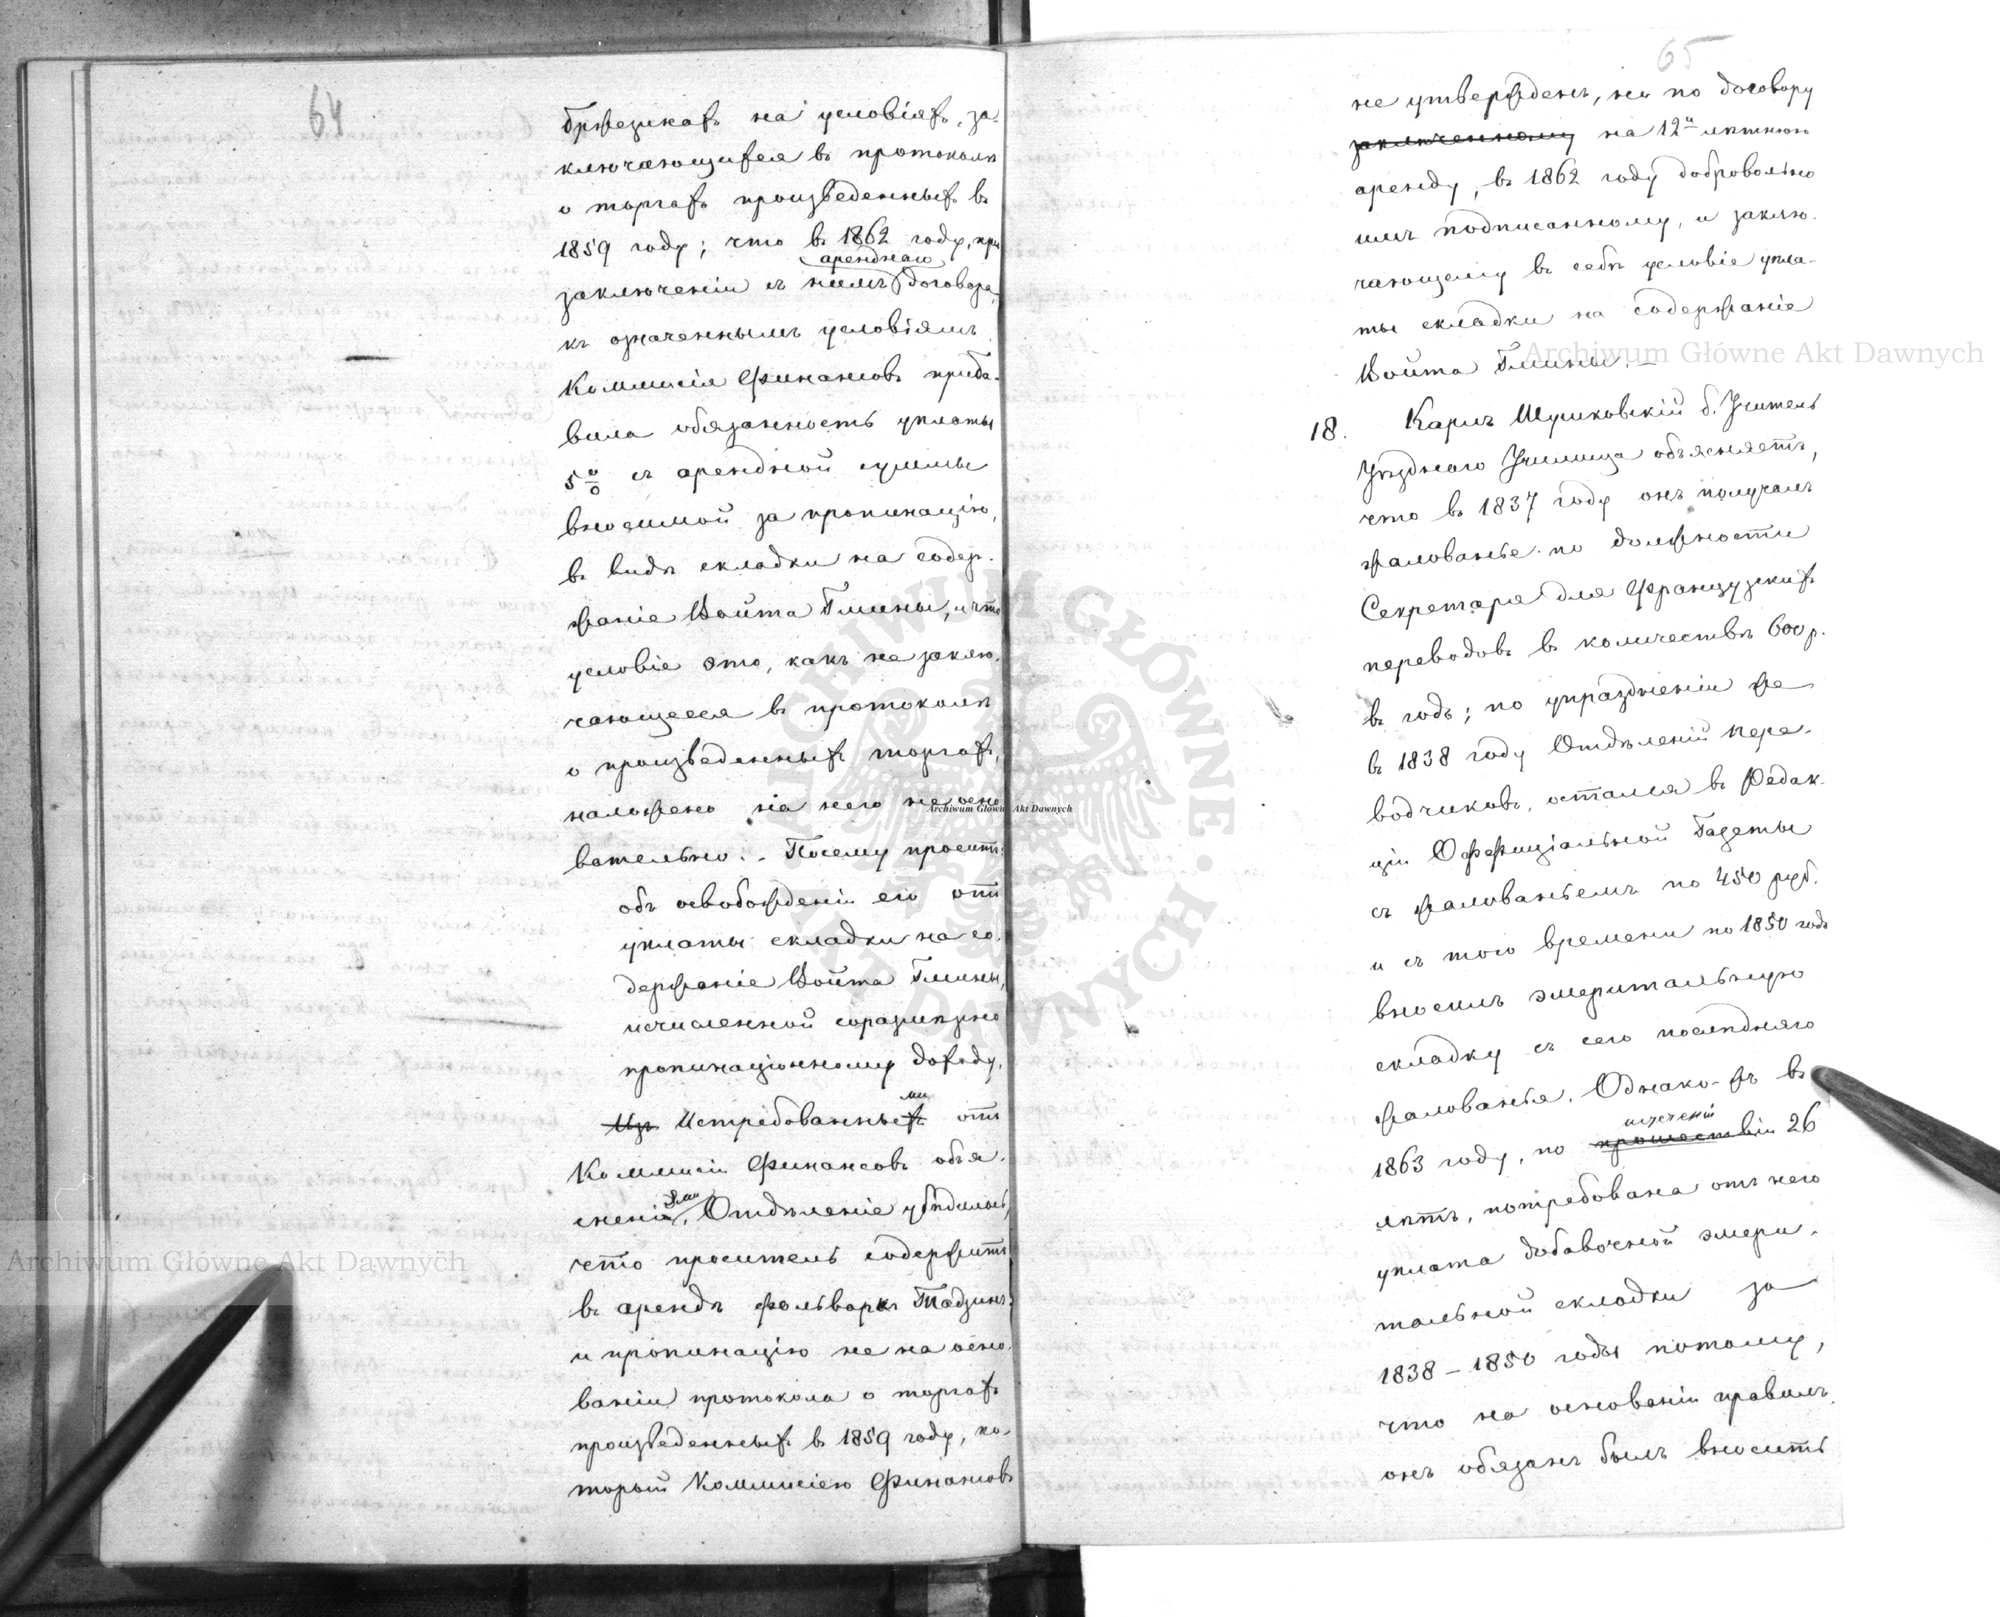 64
Бржезинахъ на условіяхъ, за-
ключающихся въ протоколѣ
о торгахъ произведенныхъ въ
1859 году; что въ 1862 году, при
аренднаго
заключеніи съ нимъ договора,
къ означеннымъ условіямъ
Коммисія Финансовъ приба-
вила обязанность уплаты
5% съ арендной суммы
вносимой за пропинацію,
въ видѣ складки на содер-
жаніе Войта Гмины, и что
условіе это, какъ не заклю-
чающееся въ протоколѣ
о произведенныхъ торгахъ,
наложено на него неосно-
вательно. - Посему проситъ
объ освобожденіи его отъ
уплаты складки на со-
держаніе Войта Гмины,
исчисленной соразмѣрно
пропинаціонному доходу.
ми
Изъ Истребованныхъ отъ
Коммисіи Финансовъ объя-
сненій, Отдѣленіе убѣдилось,
что проситель содержитъ
въ арендѣ фольваркъ Тадзинъ
и пропинацію не на осно-
ваніи протокола о торгахъ
произведенныхъ въ 1859 году, ко-
торый Коммисіею Финансовъ
65
не утвержденъ, но по договору
заключенному на 12и лѣтнюю
аренду, въ 1862 году добровольно
имъ подписанному, и заклю-
чающему въ себѣ условіе упла-
ты складки на содержаніе
Войта Гмины. -
18. Карлъ Шулковскій б. Учитель
Уѣзднаго Училища объясняетъ,
что въ 1837 году онъ получалъ
жалованье по должности
Секретаря для Французскихъ
переводовъ въ количествѣ 600 р.
въ годъ; по упраздненіи же
въ 1838 году Отдѣленій пере-
водчиковъ, остался въ Редак-
ціи Оффиціальной Газеты
съ жалованьемъ по 450 руб.
и съ того времени по 1850 годъ
вносилъ эмеритальную
складку съ сего послѣдняго
жалованья. Однако-жъ въ
истеченіи
1863 году, по прошествіи 26
лѣтъ, потребована отъ него
уплата добавочной эмери-
тальной складки за
1838 - 1850 годы потому,
что на основаніи правилъ
онъ обязанъ былъ вносить
Archiwum Główne Akt Dawnych
Archiwum Główne Akt Dawnych
Archiwum Główne Akt Dawnych
ARCHIWUM GŁÓWNE AKT DAWNYCH